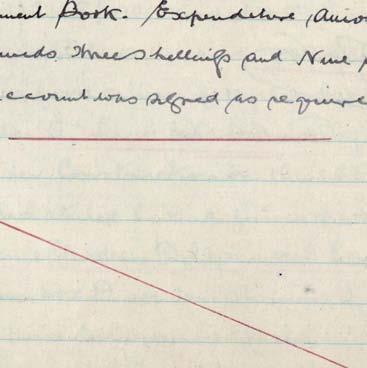 ment Book. Expenditure, Amo
unds three Shillings and Nine p
ccount was signed as require